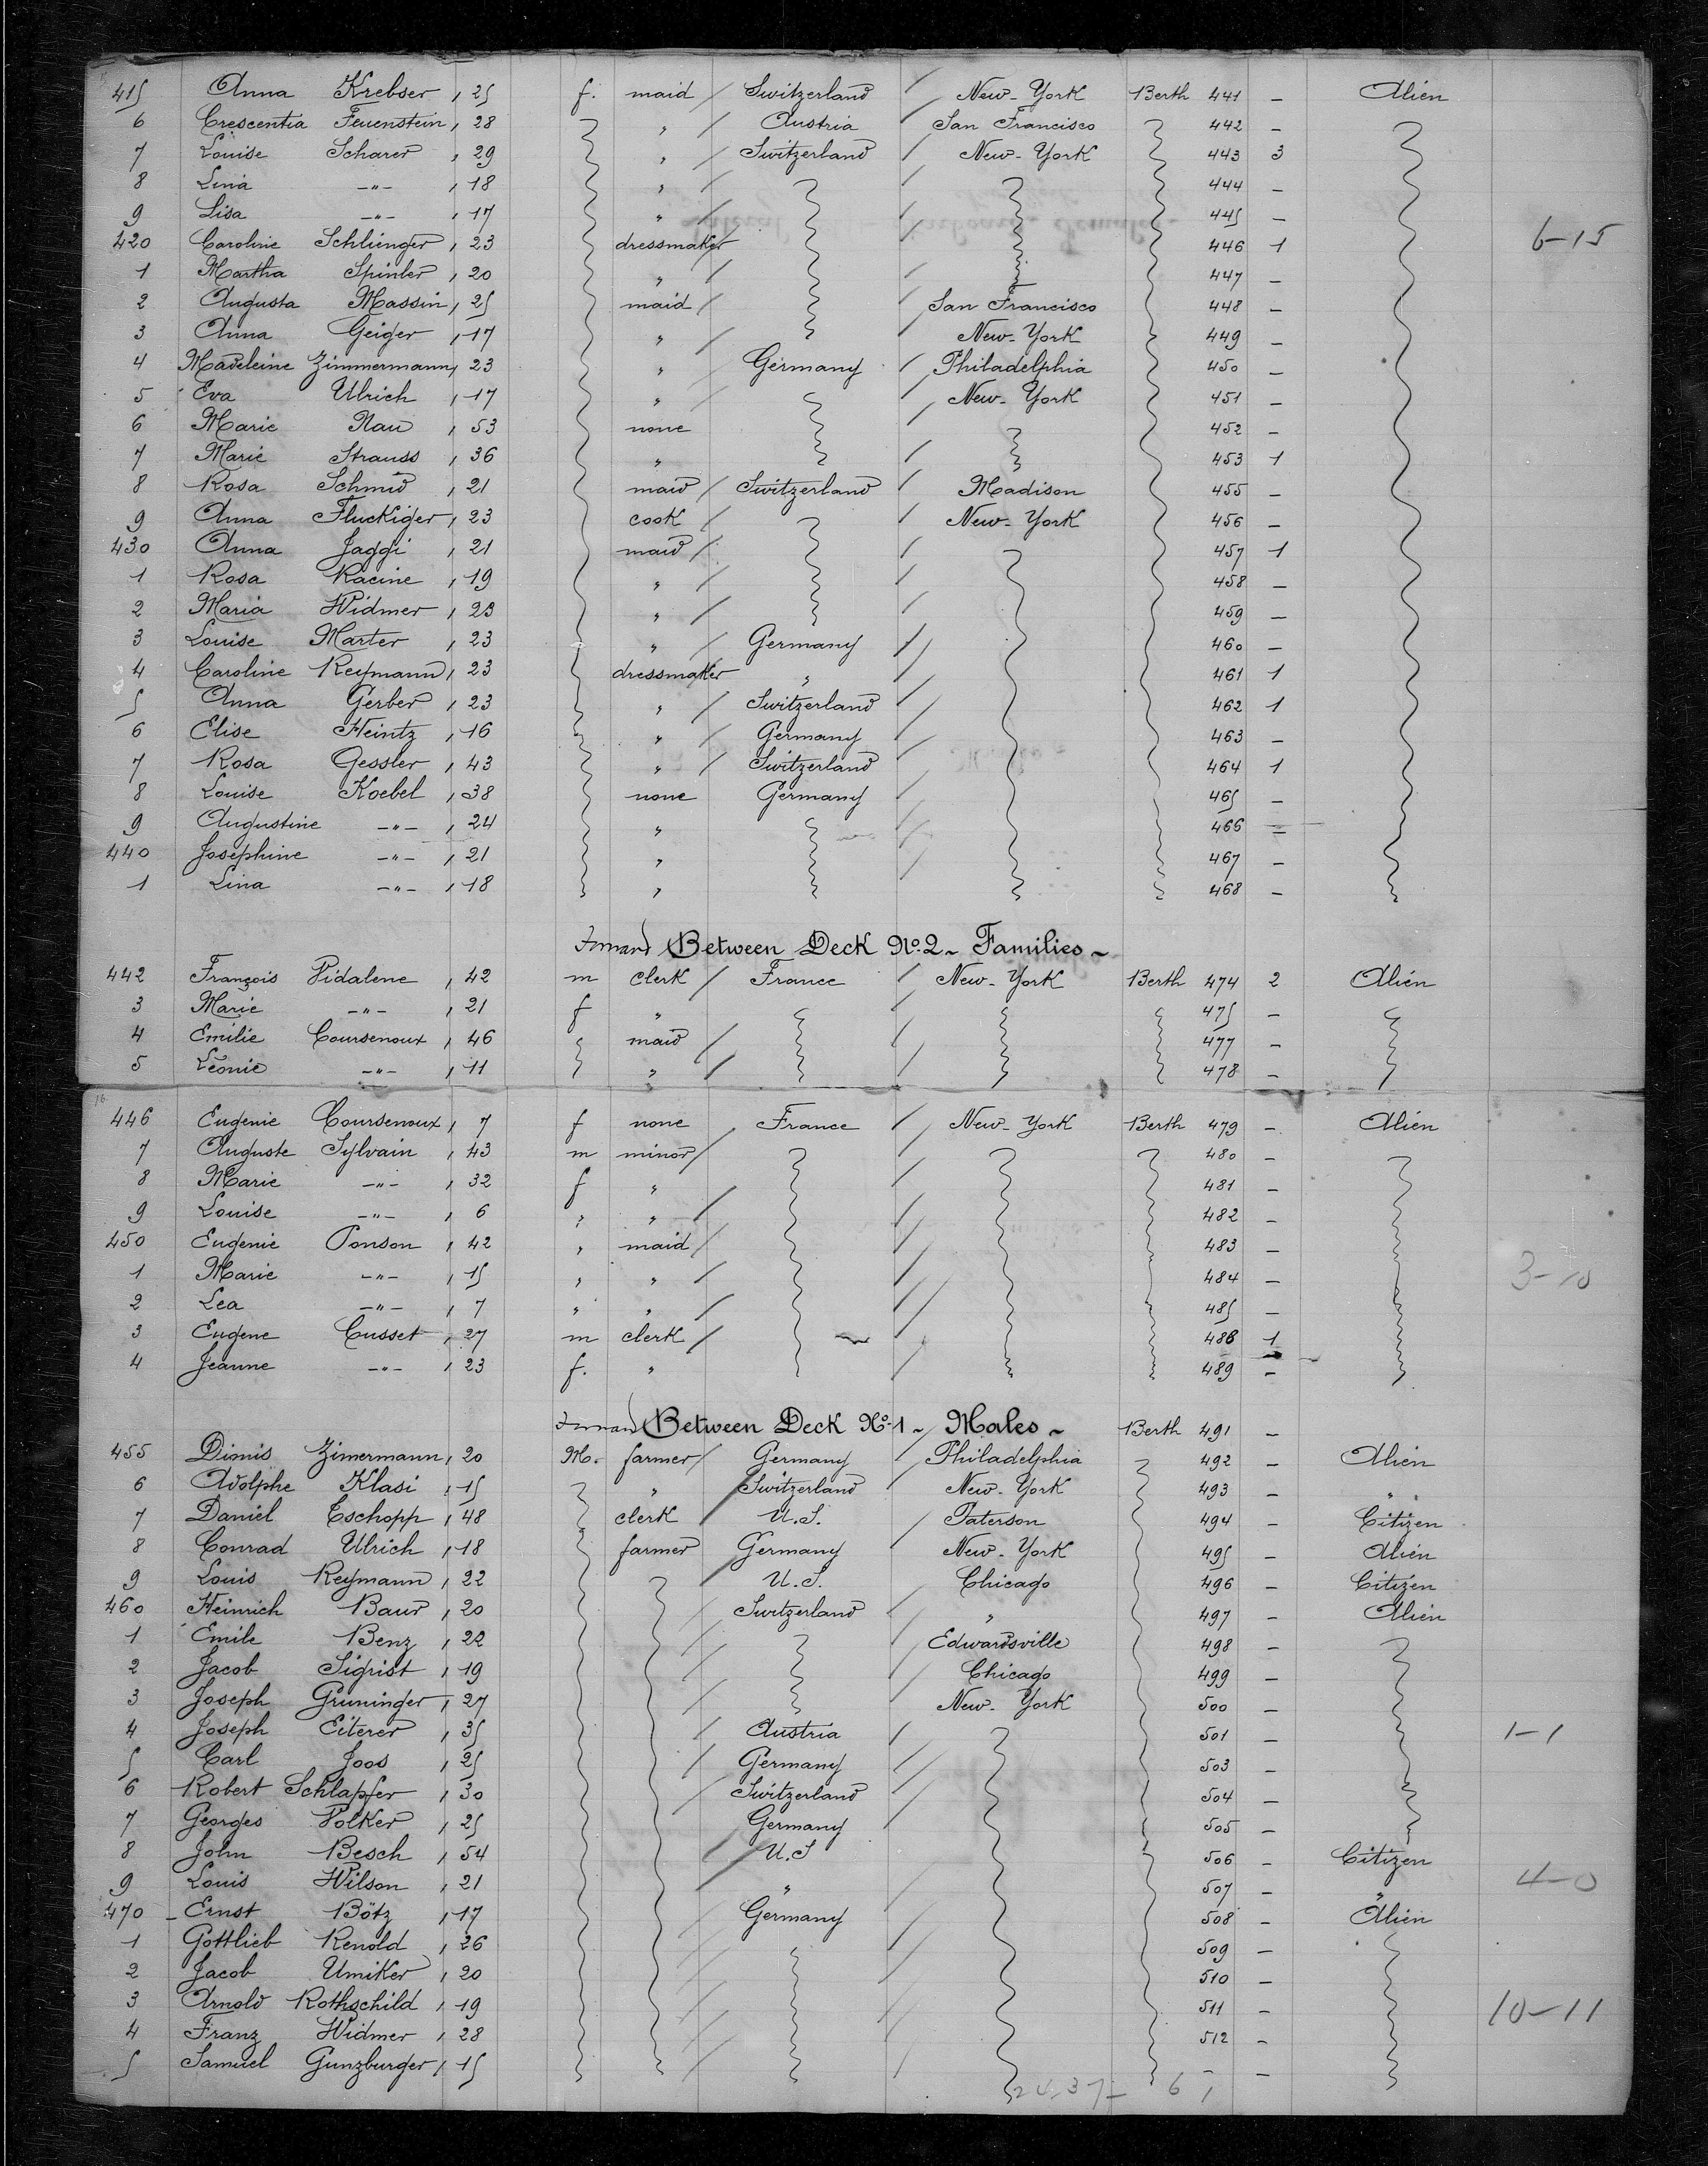 415 Anna Krebser , 25 f. maid / Switzerland / New-York Berth 441 – Alien
6 Crescentia Feuenstein , 28 " / Austria / San Francisco 442 –
7 Louise Scharer , 29 " / Switzerland / New-York 443 3
8 Lina -"- , 18 " / 444 –
9 Lisa -"- , 17 " / 445 –
420 Caroline Schlienger , 23 dressmaker / 446 1 6-15
1 Martha Spinler , 20 " / 447 –
2 Augusta Massin , 25 maid / San Francisco 448 –
3 Anna Geiger , 17 " / New-York 449 –
4 Madeleine Zimmermann , 23 " Germany / Philadelphia 450 –
5 Eva Ulrich , 17 " / New-York 451 –
6 Marie Nau , 53 none / 452 –
7 Marie Strauss , 36 " / 453 1
8 Rosa Schmid , 21 maid / Switzerland / Madison 455 –
9 Anna Fluckiger , 23 cook / New-York 456 –
430 Anna Jaggi , 21 maid / 457 1
1 Rosa Racine , 19 " / 458 –
2 Maria Widmer , 23 " / 459 –
3 Louise Marter , 23 " / Germany / 460 –
4 Caroline Reymann , 23 dressmaker " / 461 1
5 Anna Gerber , 23 " / Switzerland / 462 1
6 Elise Heintz , 16 " / Germany / 463 –
7 Rosa Gessler , 43 " / Switzerland / 464 1
8 Louise Koebel , 38 none Germany / 465 –
9 Augustine -"- , 24 " / 466 –
440 Josephine -"- , 21 " / 467 –
1 Lina -"- , 18 " 468 –
Forward Between Deck No. 2 – Families –
442 François Vidalene , 42 m clerk / France / New-York Berth 474 2 Alien
3 Marie -"- , 21 f " / 475 –
4 Emilie Coursenoux , 46 maid / 477 –
5 Léonie -"- , 11 " / 478 –
446 Eugenie Coursenoux , 7 f none France / New-York Berth 479 – Alien
7 Auguste Sylvain , 43 m minor / 480 –
8 Marie -"- , 32 f " / 481 –
9 Louise -"- , 6 " " / 482 –
450 Eugenie Ponson , 42 " maid / 483 –
1 Marie -"- , 15 " " / 484 – 3-10
2 Lea -"- , 7 " " / 485 –
3 Eugene Cusset , 27 m clerk / 488 1
4 Jeanne -"- , 23 f. " / 489 –
Forward Between Deck No. 1 – Males – Berth 491 –
455 Dionis Zimermann , 20 M. farmer / Germany / Philadelphia 492 – Alien
6 Adolphe Klasi , 15 " / Switzerland / New-York 493 – "
7 Daniel Tschopp , 48 clerk / U.S. / Paterson 494 – Citizen
8 Conrad Ulrich , 18 farmer Germany / New-York 495 – Alien
9 Louis Reymann , 22 / U.S. / Chicago 496 – Citizen
460 Heinrich Baur , 20 / Switzerland / " 497 – Alien
1 Emile Benz , 22 / Edwardsville 498 –
2 Jacob Sigrist , 19 / Chicago 499 –
3 Joseph Gruninger , 27 / New-York 500 –
4 Joseph Eiterer , 35 / Austria / 501 – 1-1
5 Carl Joos , 25 / Germany / 503 –
6 Robert Schlapfer , 30 / Switzerland / 504 –
7 Georges Volker , 25 Germany / 505 –
8 John Besch , 54 / U.S / 506 – Citizen
9 Louis Wilson , 21 / " / 507 – " 4-0
470 Ernst Bötz , 17 Germany / 508 – Alien
1 Gottlieb Renold , 26 / 509 –
2 Jacob Umiker , 20 / 510 –
3 Arnold Rothschild , 19 / 511 – 10-11
4 Franz Widmer , 28 / 512 –
5 Samuel Gunzburger , 15 / – –